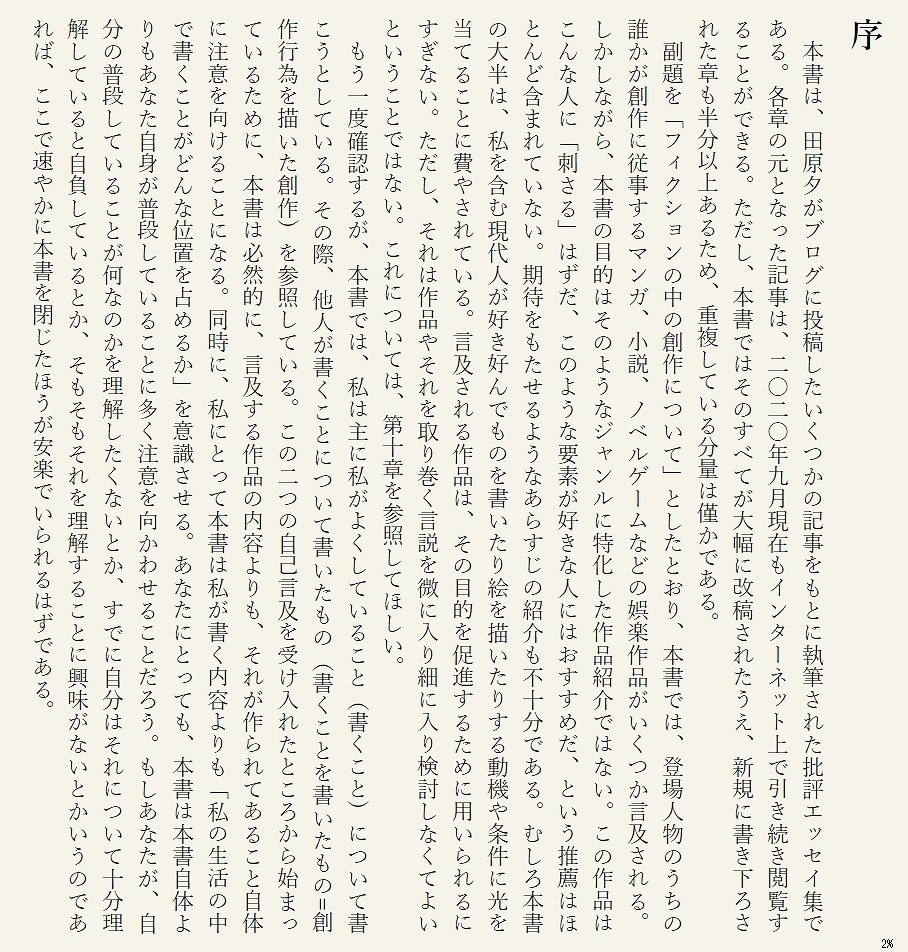 序
　本書は、田原夕がブログに投稿したいくつかの記事をもとに執筆された批評エッセイ集で
ある。各章の元となった記事は、二〇二〇年九月現在もインターネット上で引き続き閲覧す
ることができる。ただし、本書ではそのすべてが大幅に改稿されたうえ、新規に書き下ろさ
れた章も半分以上あるため、重複している分量は僅かである。
　副題を「フィクションの中の創作について」としたとおり、本書では、登場人物のうちの
誰かが創作に従事するマンガ、小説、ノベルゲームなどの娯楽作品がいくつか言及される。
しかしながら、本書の目的はそのようなジャンルに特化した作品紹介ではない。この作品は
こんな人に「刺さる」はずだ、このような要素が好きな人にはおすすめだ、という推薦はほ
とんど含まれていない。期待をもたせるようなあらすじの紹介も不十分である。むしろ本書
の大半は、私を含む現代人が好き好んでものを書いたり絵を描いたりする動機や条件に光を
当てることに費やされている。言及される作品は、その目的を促進するために用いられるに
すぎない。ただし、それは作品やそれを取り巻く言説を微に入り細に入り検討しなくてよい
ということではない。これについては、第十章を参照してほしい。
　もう一度確認するが、本書では、私は主に私がよくしていること（書くこと）について書
こうとしている。その際、他人が書くことについて書いたもの（書くことを書いたもの＝創
作行為を描いた創作）を参照している。この二つの自己言及を受け入れたところから始まっ
ているために、本書は必然的に、言及する作品の内容よりも、それが作られてあること自体
に注意を向けることになる。同時に、私にとって本書は私が書く内容よりも「私の生活の中
で書くことがどんな位置を占めるか」を意識させる。あなたにとっても、本書は本書自体よ
りもあなた自身が普段していることに多く注意を向かわせることだろう。もしあなたが、自
分の普段していることが何なのかを理解したくないとか、すでに自分はそれについて十分理
解していると自負しているとか、そもそもそれを理解することに興味がないとかいうのであ
れば、ここで速やかに本書を閉じたほうが安楽でいられるはずである。
2%